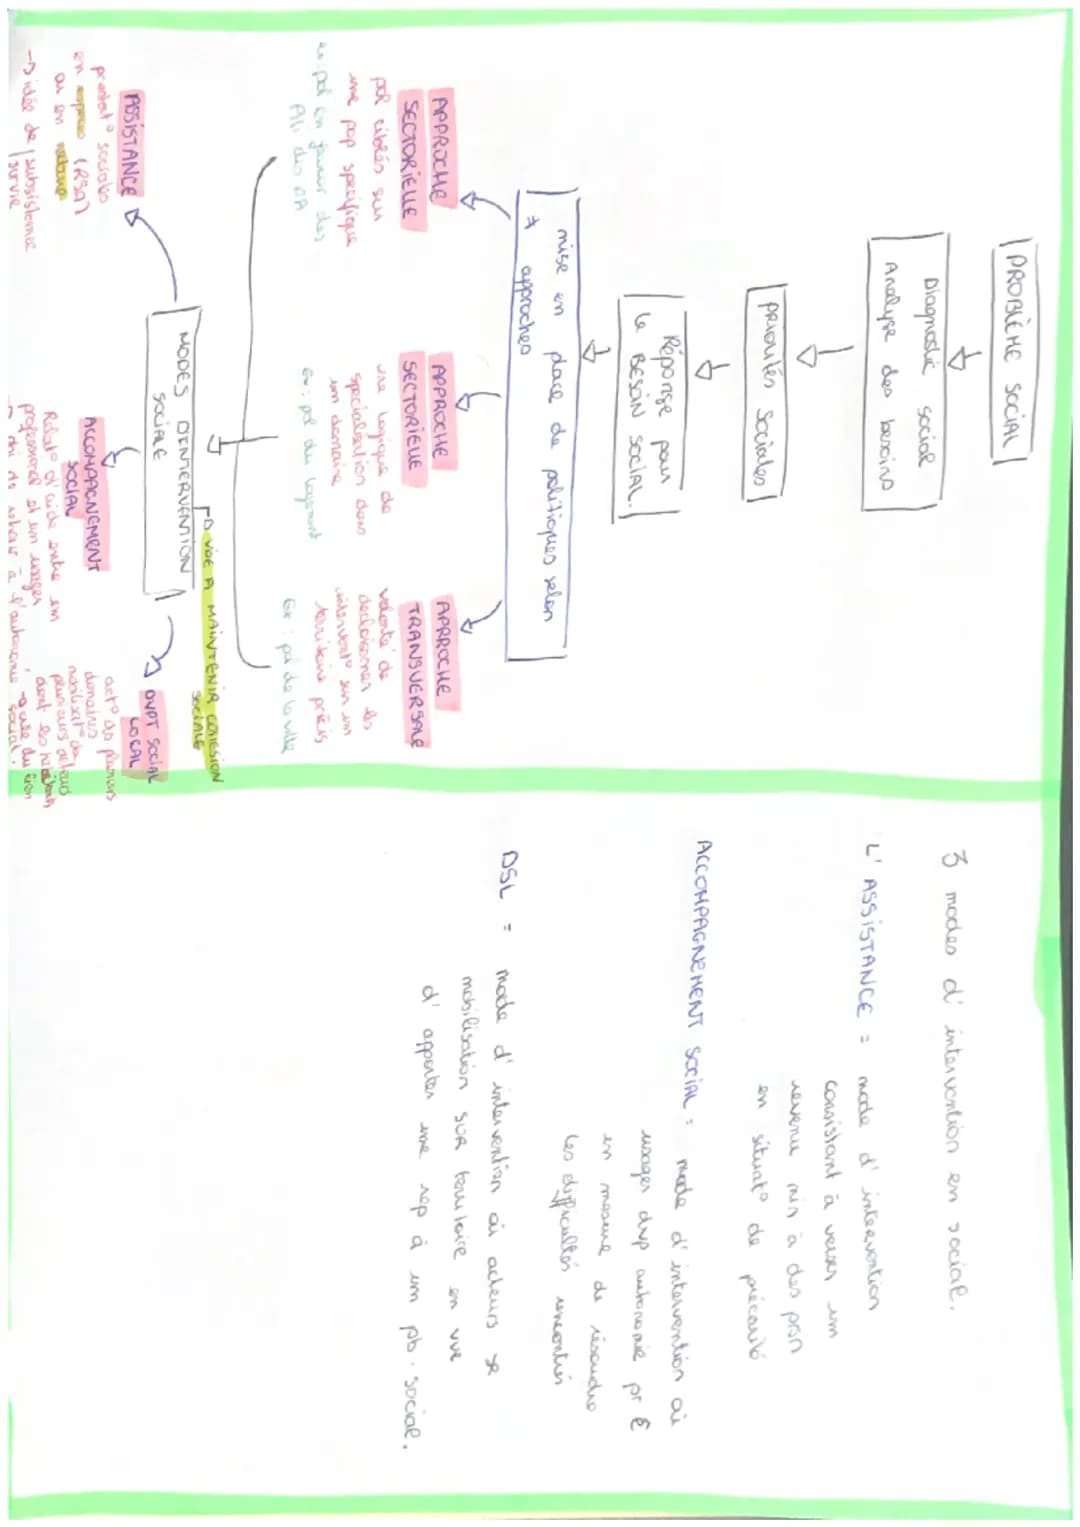 PROBLÈME SOCIAL
Diagnostic social
Analyse des besoins
PRIORITÉS Sociales
Réponse pour
le BESOIN SOCIAL.
mise en place de politiques selon
≠ approches
APPROCHE
SECTORIELLE
pol ciblées sur
une pop spécifique
ex: pol en faveur des
PA
APPROCHE
SECTORIELLE
une logique de
spécialisation dans
un domaine
Ex: pol du logement
APPROCHE
TRANSVERSALE
volonté de
décloisonner les
intervent° sur un
territoire précis
Ex: pol de la ville
MODES D'INTERVENTION
SOCIALE
VISE A MAINTENIR COHESION
SOCIALE
ASSISTANCE
prestat° sociales
en espèces (RSA)
ou en nature
→ idée de subsistance
survie
ACCOMPAGNEMENT
SOCIAL
Relat° d'aide entre un
professionnel et un usager
à l'autonomie
DVPT SOCIAL
LOCAL
act° ds plusieurs
domaines
mobilisat° de
plusieurs acteurs
dont les habitants
→ crée du lien
social.
3 modes d'intervention en social.
L'ASSISTANCE = mode d'intervention
consistant à verser un
revenu min à des prsn
en situat° de précarité
ACCOMPAGNEMENT SOCIAL = mode d'intervention où
usager dvp autonomie pr ê
en mesure de résoudre
les difficultés rencontrées
DSL = mode d'intervention où acteurs se
mobilisation SUR territoire en vue
d'apporter une rep à un pb. social.